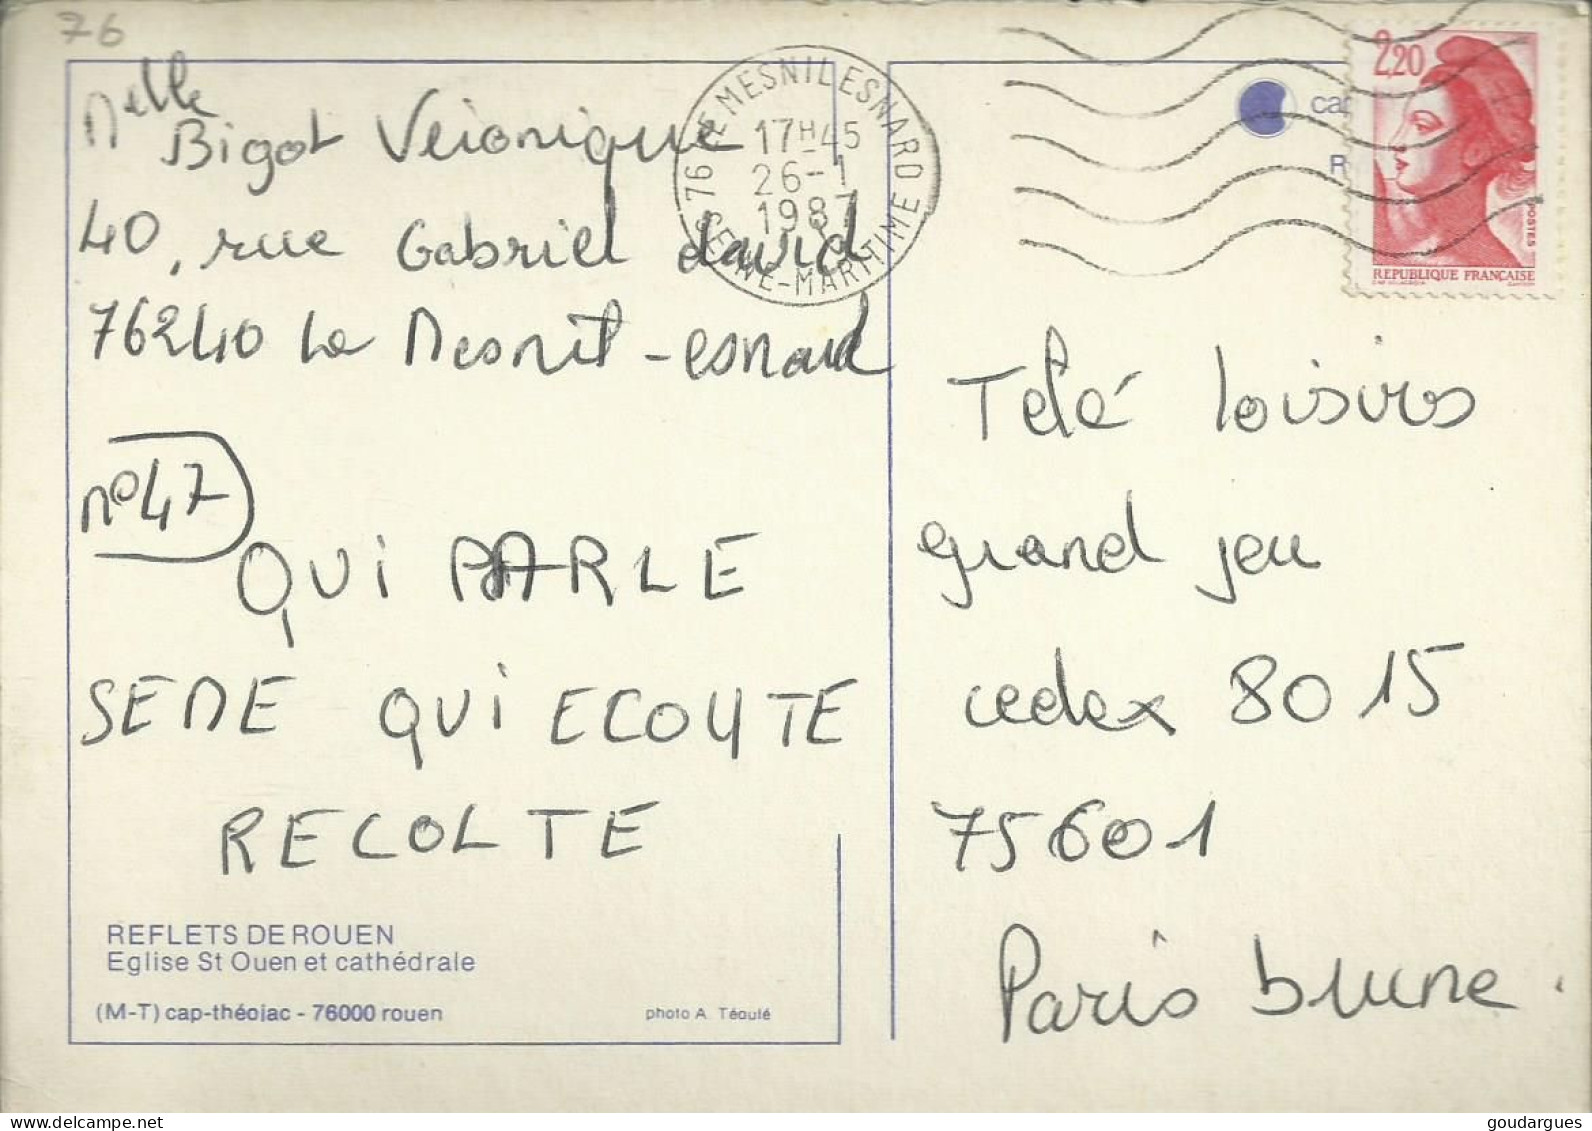 76
Melle Bigot Véronique
40, rue Gabriel david
76240 Le Mesnil-esnard
n°47
QUI PARLE
SEME QUI ECOUTE
RECOLTE
REFLETS DE ROUEN
Eglise St Ouen et cathédrale
(M-T) cap-théojac - 76000 rouen
photo A. Téoulé
76 LE MESNIL ESNARD
17H45
26-1
1987
SEINE-MARITIME
2,20
POSTES
REPUBLIQUE FRANÇAISE
Télé loisirs
grand jeu
cedex 8015
75601
Paris brune.
goudargues